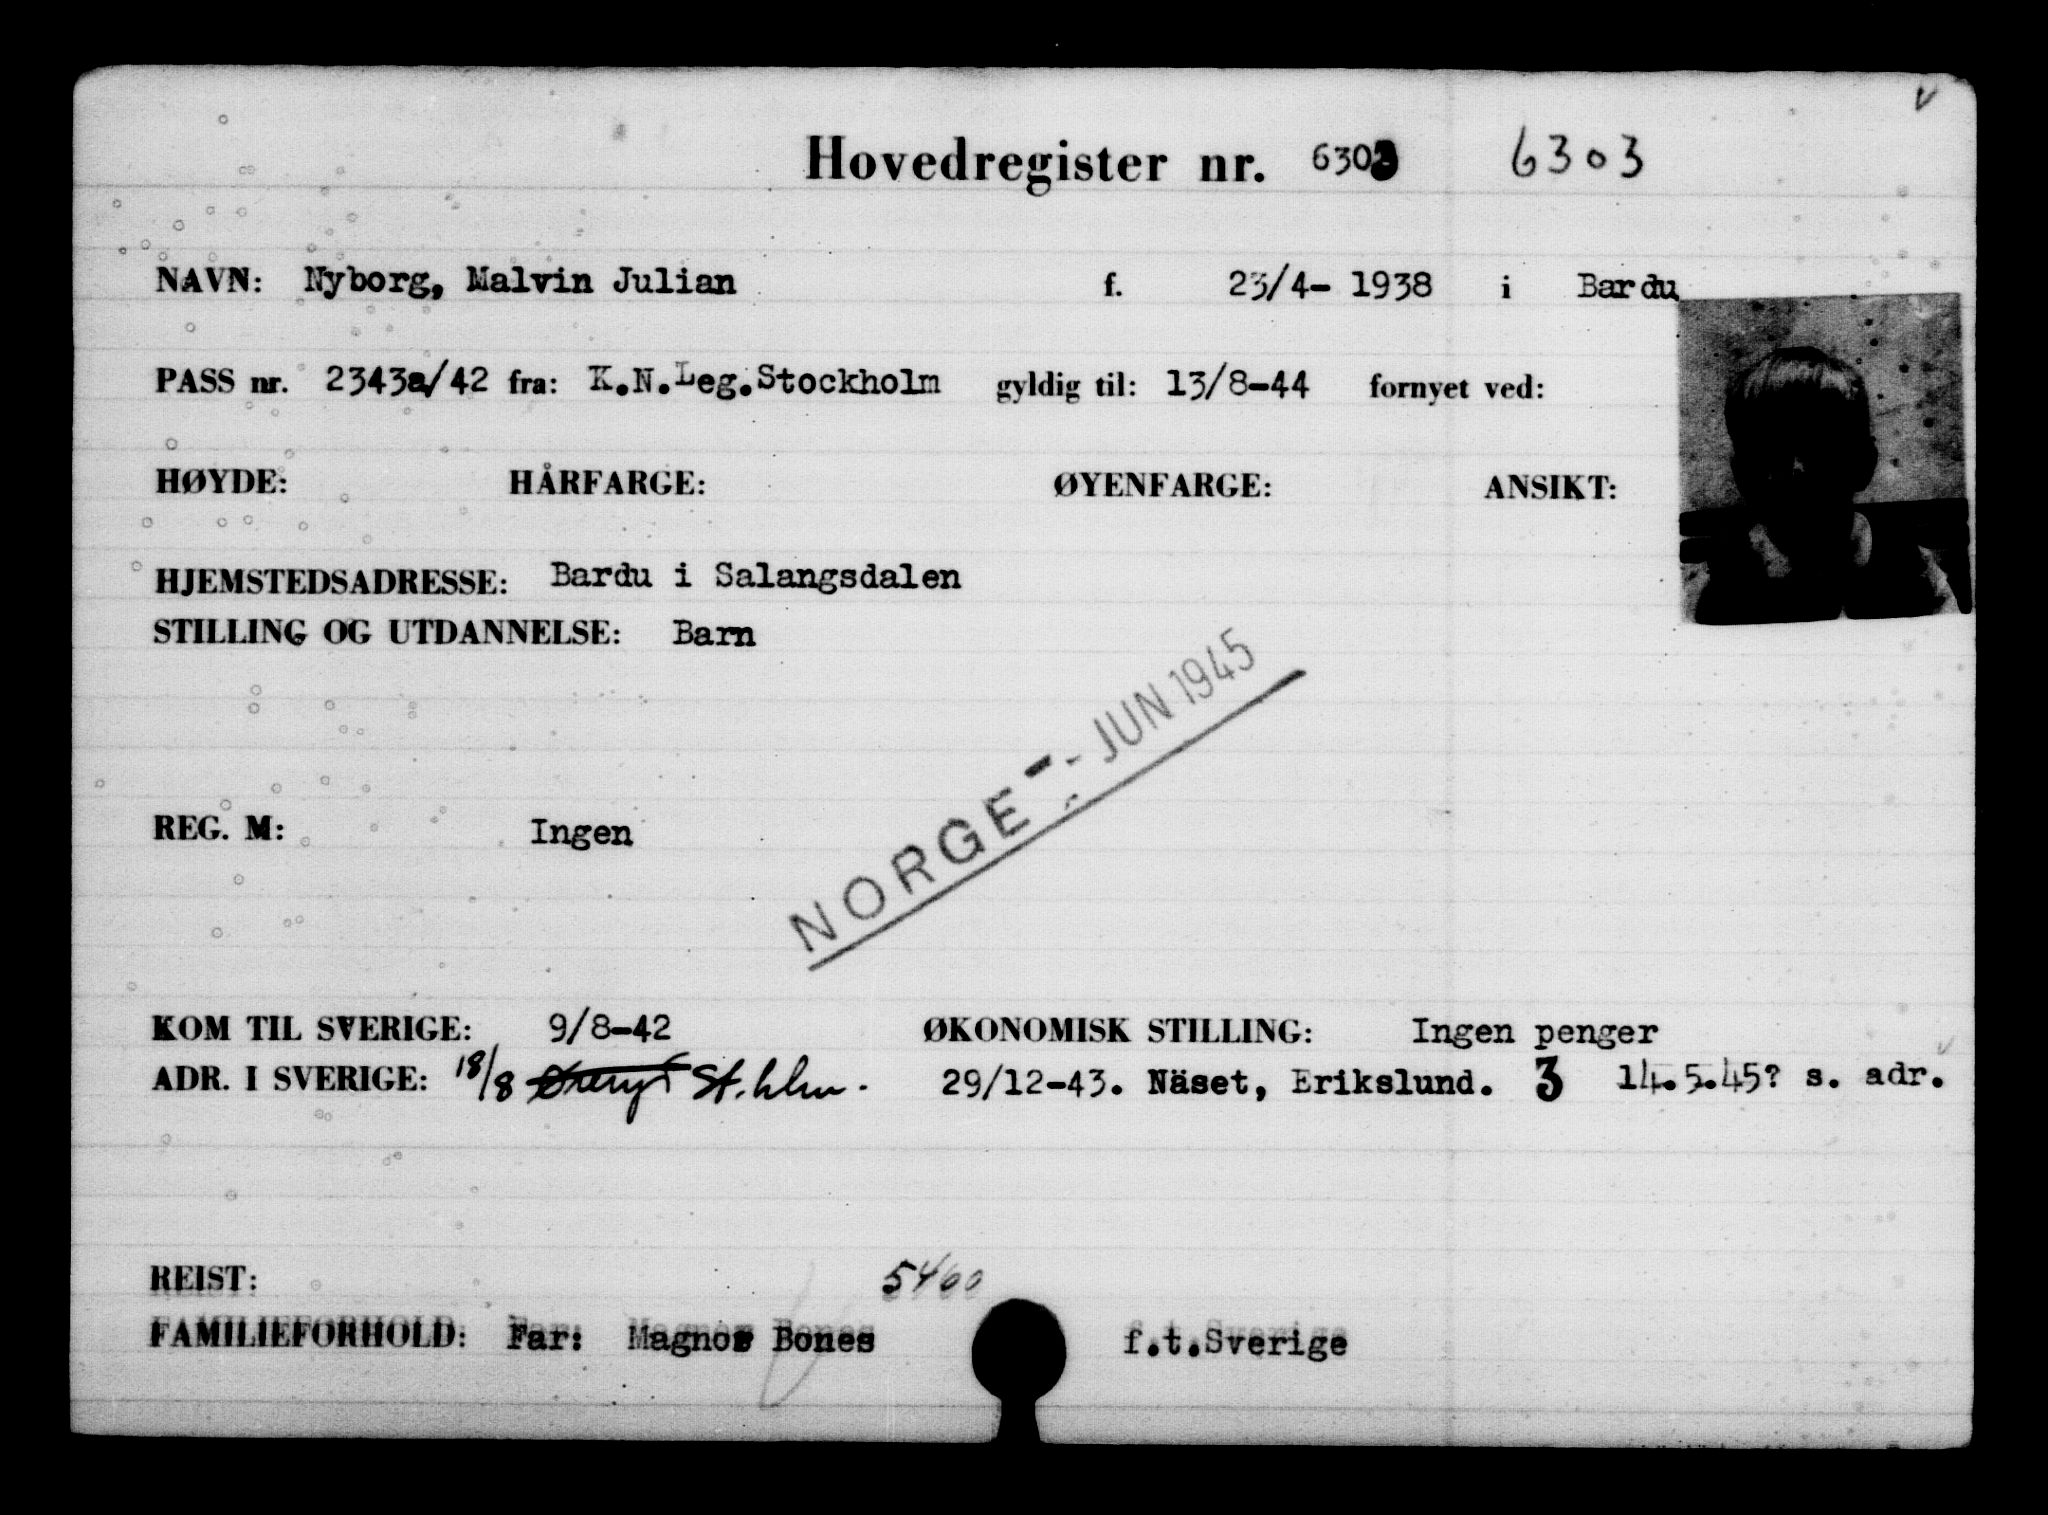 Hovedregister nr. 6303 6303
NAVN: Nyborg, Malvin Julian f. 23/4- 1938 i Bardu
PASS nr. 2343a/42 fra: K.N.Leg.Stockholm gyldig til: 13/8-44 fornyet ved:
HØYDE: HÅRFARGE: ØYENFARGE: ANSIKT:
HJEMSTEDSADRESSE: Bardu i Salangsdalen
STILLING OG UTDANNELSE: Barn
NORGE - JUN 1945
REG. M: Ingen
KOM TIL SVERIGE: 9/8-42 ØKONOMISK STILLING: Ingen penger
ADR. I SVERIGE: 18/8 St.hlm. 29/12-43. Näset, Erikslund. 3 14.5.45? s. adr.
REIST: 5460
FAMILIEFORHOLD: Far: Magnor Bones f.t.Sverige